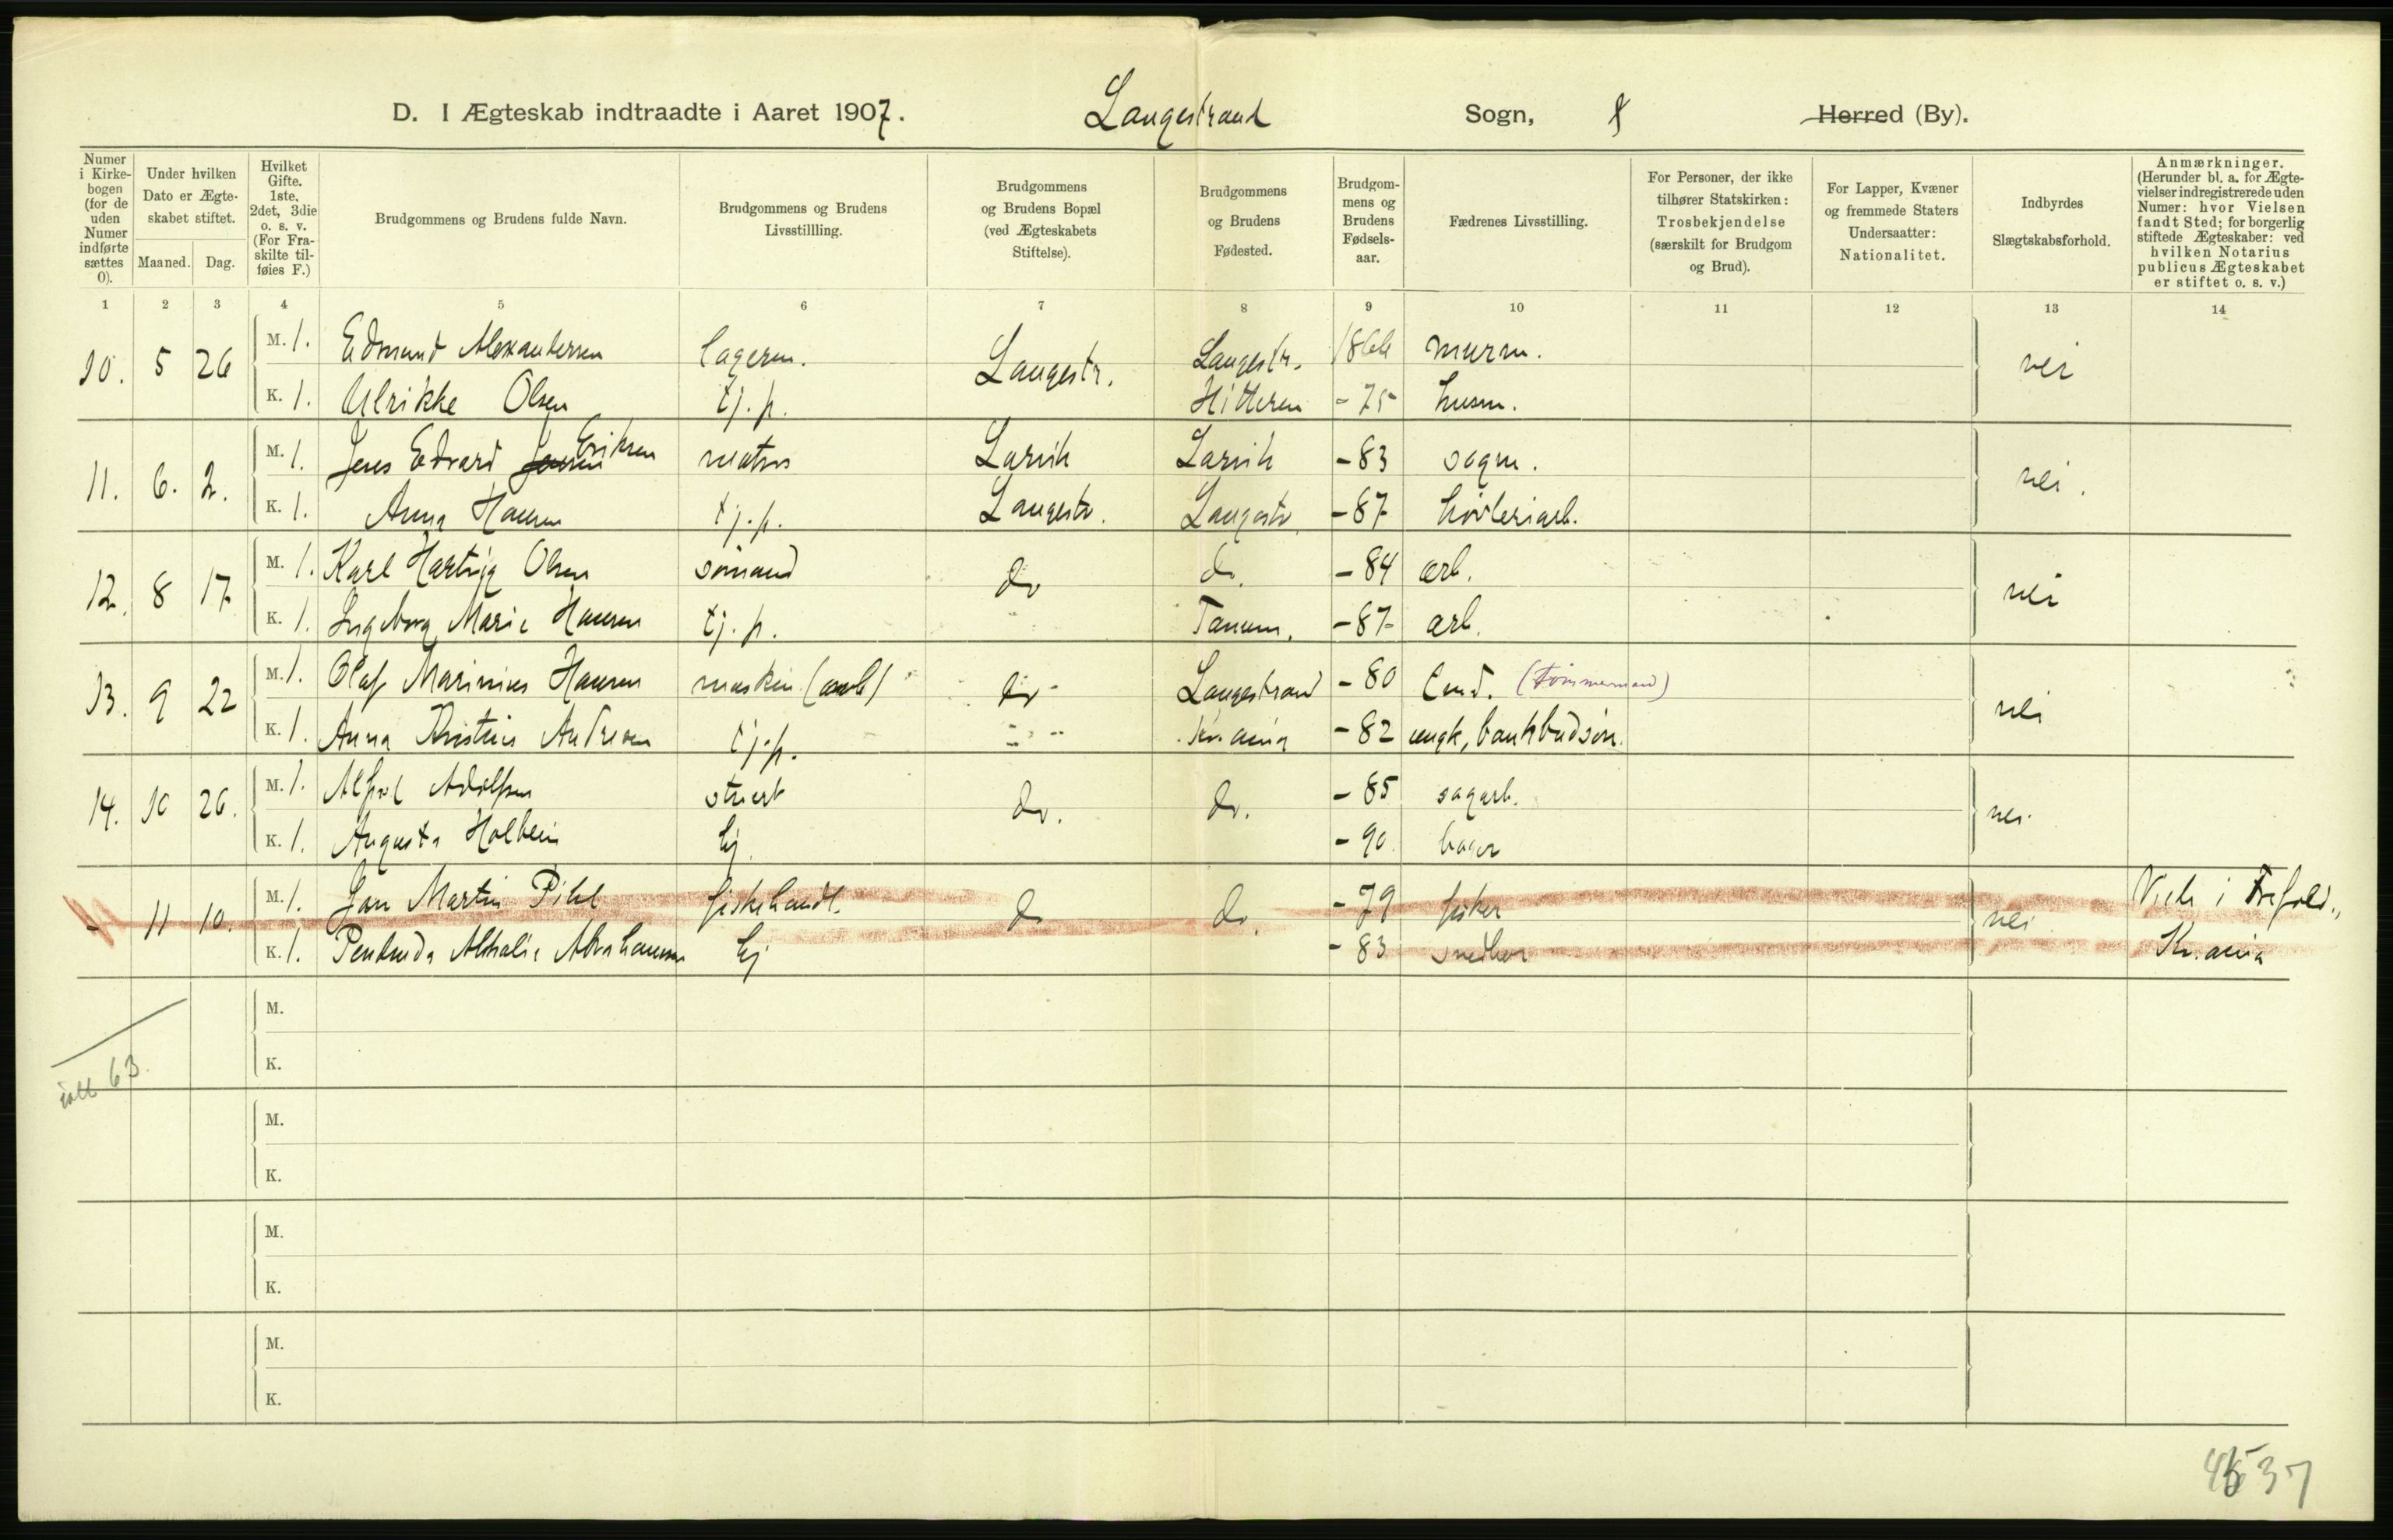 D. I Ægteskab indtraadte i Aaret 1907. Langestrand Sogn, Herred (By).
Numer i Kirkebogen (for de uden Numer indførte sættes 0).
Under hvilken Dato er Ægteskabet stiftet.
Maaned. Dag.
Hvilket Gifte. 1ste, 2det, 3die o. s. v. (For Fraskilte tilføies F.)
Brudgommens og Brudens fulde Navn.
Brudgommens og Brudens Livsstillling.
Brudgommens og Brudens Bopæl (ved Ægteskabets Stiftelse).
Brudgommens og Brudens Fødested.
Brudgommens og Brudens Fødselsaar.
Fædrenes Livsstilling.
For Personer, der ikke tilhører Statskirken: Trosbekjendelse (særskilt for Brudgom og Brud).
For Lapper, Kvæner og fremmede Staters Undersaatter: Nationalitet.
Indbyrdes Slægtskabsforhold.
Anmærkninger. (Herunder bl. a. for Ægtevielser indregistrerede uden Numer: hvor Vielsen fandt Sted; for borgerlig stiftede Ægteskaber: ved hvilken Notarius publicus Ægteskabet er stiftet o. s. v.)
1 2 3 4 5 6 7 8 9 10 11 12 13 14
10. 5 26 M. 1. Edmund Alexandersen lagerm. Langestr. Langestr. 1866 murm. nei
K. 1. Ulrikke Olsen tj.p. Hitteren - 75 husm.
11. 6. 2. M. 1. Jens Edvard Jensen Eriksen matros Larvik Larvik - 83 sagm. nei.
K. 1. Anna Hansen tj.p. Langestr. Langestr. - 87 høvleriarb.
12. 8 17 M. 1. Karl Hartvig Olsen sømand do do. - 84 arb. nei
K. 1. Ingeborg Marie Hansen tj.p. Tanum. - 87 arb.
13. 9 22 M. 1. Olaf Marinius Hansen maskin (arb) do Langestrand - 80 (tømmermand) nei
K. 1. Anna Kristine Andresen tj.p. Kr.ania - 82 ungk, bankbudsøn.
14. 10 26. M. 1. Alfred Adolfsen stuert do. do. - 85 sagarb. nei.
K. 1. Augusta Holbein hj. - 90. bager
- 11 10. M. 1. Jan Martin Pihl fiskehandl. do do. - 79 fisker nei Viede i Trefold.,
K. 1. Athalie Abrahamsen hj - 83 snedker Kr.ania
M.
K.
ialt 63.
M.
K.
M.
K.
M.
K.
4537